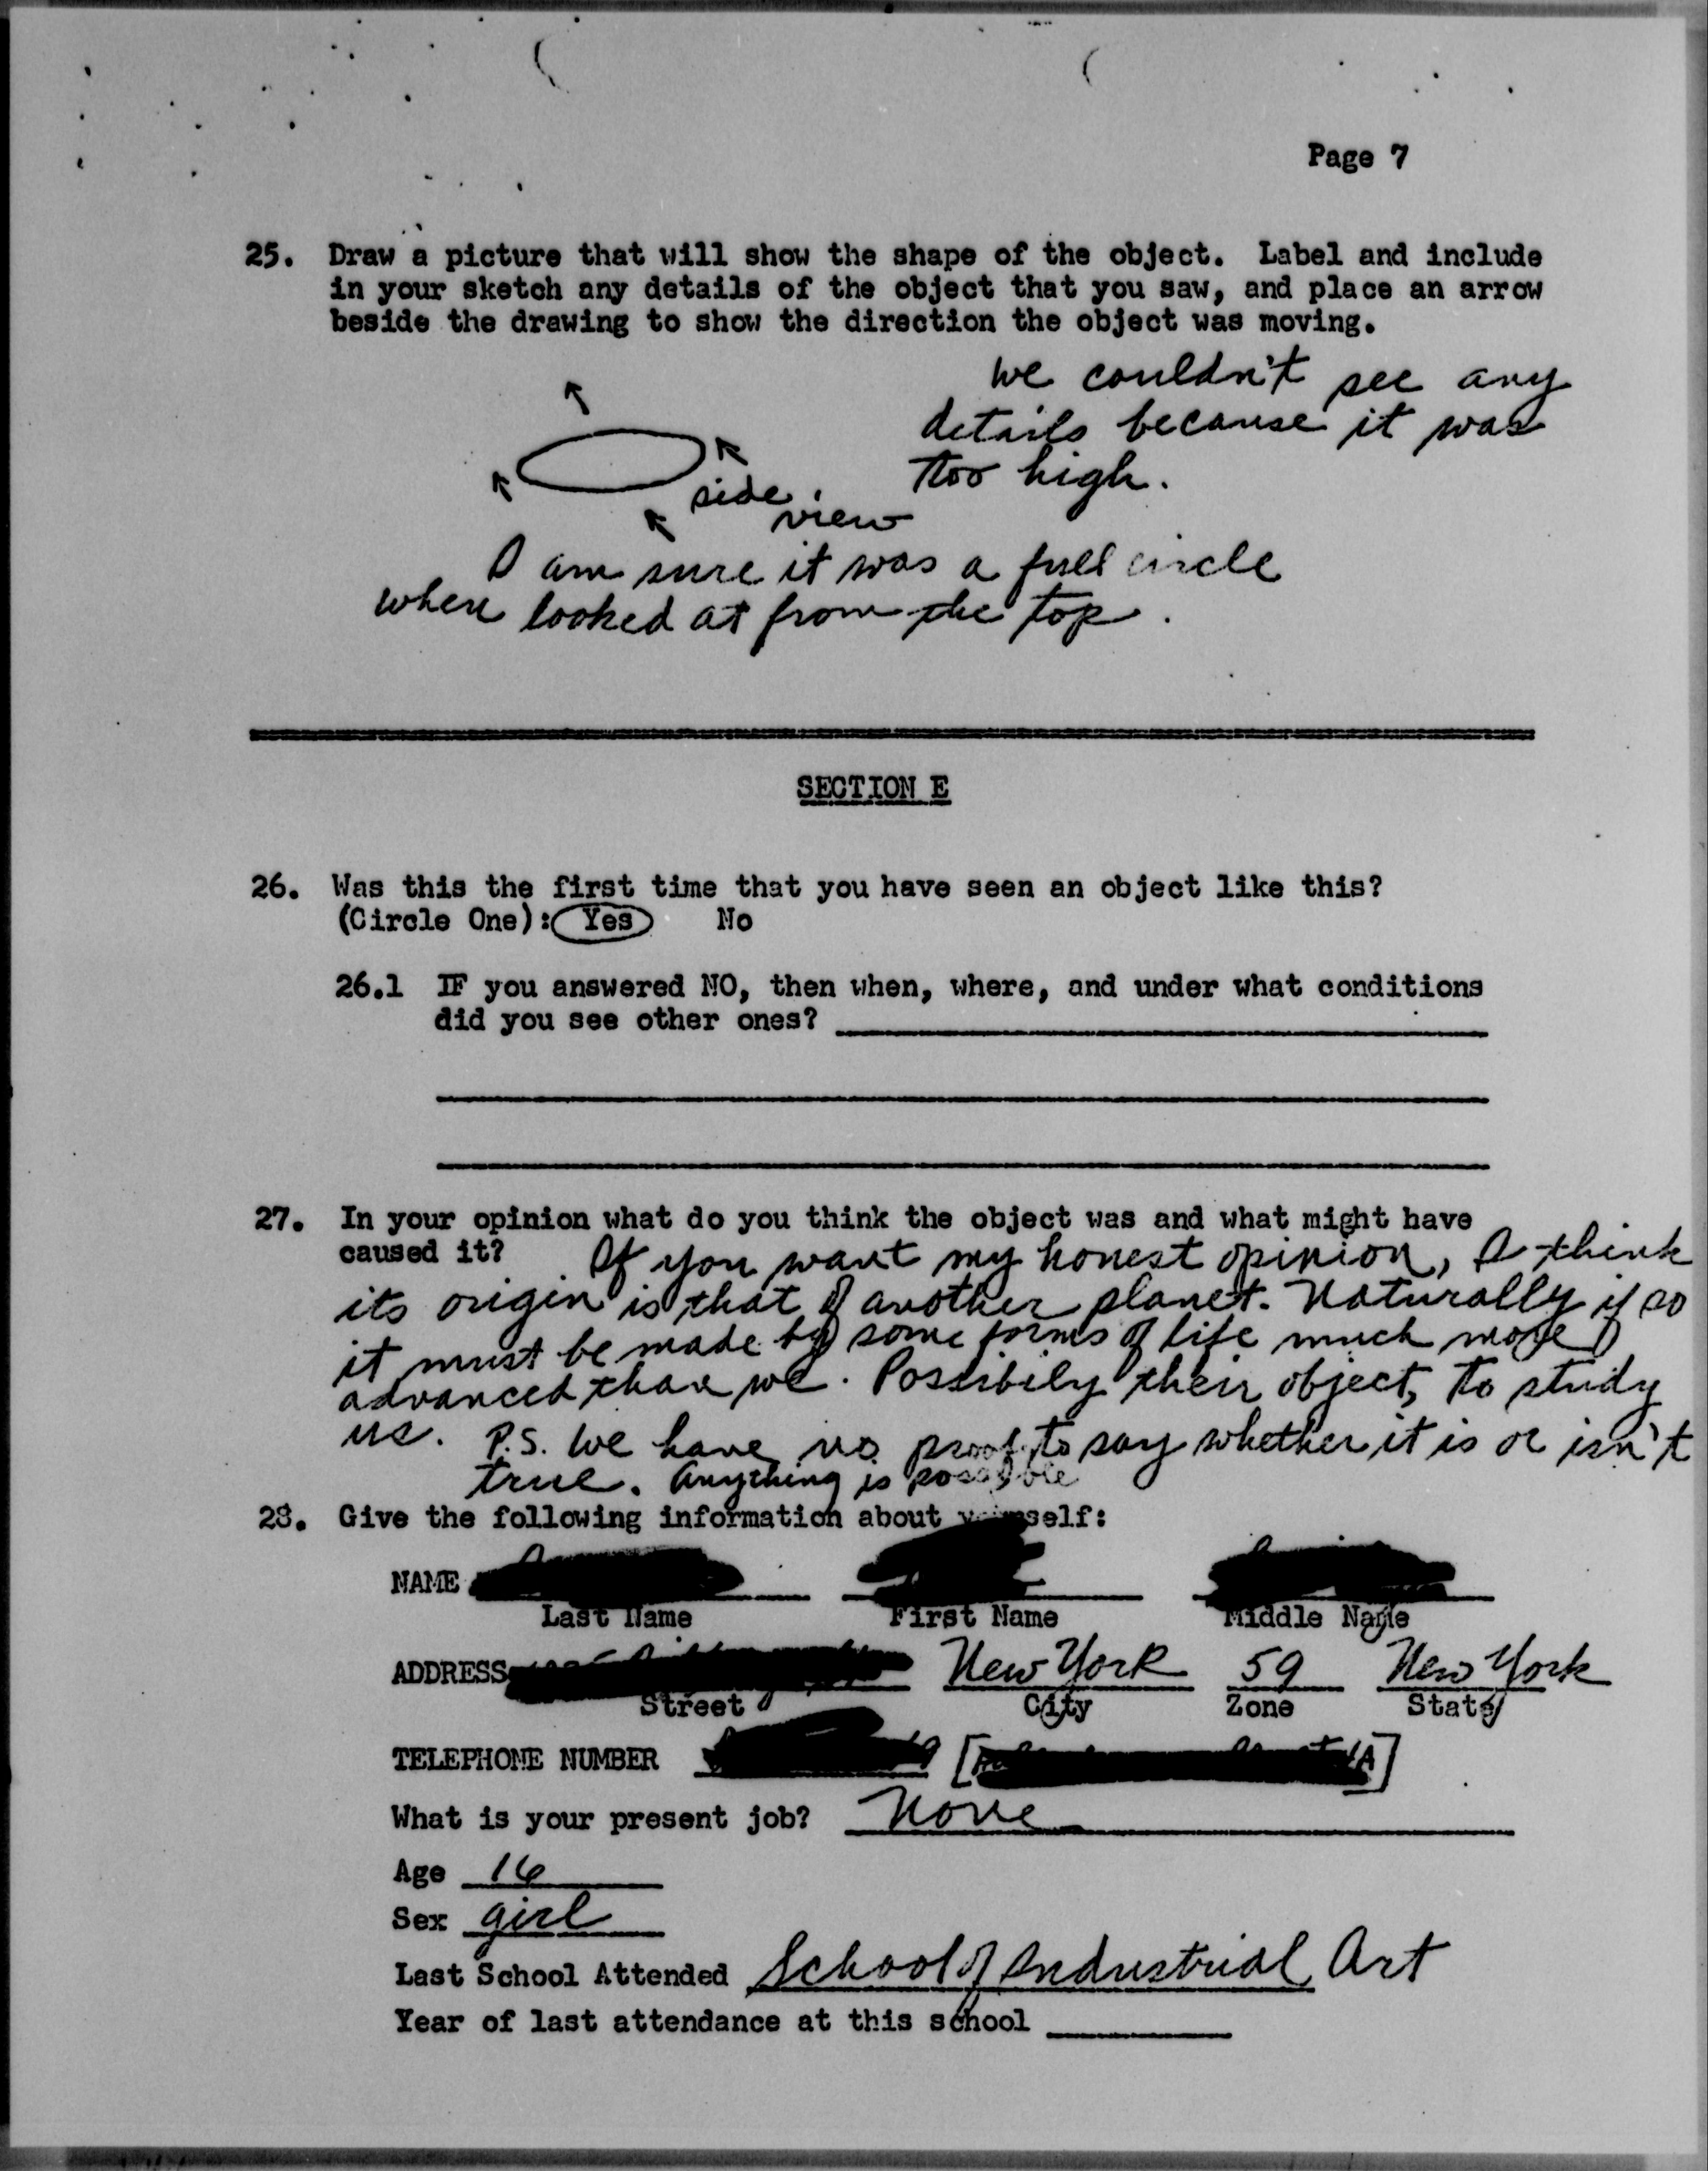 Page 7
25. Draw a picture that will show the shape of the object. Label and include
in your sketch any details of the object that you saw, and place an arrow
beside the drawing to show the direction the object was moving.
we couldn't see any
details because it was
too high.
side view
I am sure it was a full circle
when looked at from the top.
SECTION E
26. Was this the first time that you have seen an object like this?
(Circle One): Yes No
26.1 IF you answered NO, then when, where, and under what conditions
did you see other ones?
27. In your opinion what do you think the object was and what might have
caused it? If you want my honest opinion, I think
its origin is that of another planet. Naturally if so
it must be made by some forms of life much more
advanced than we. Possibily their object, to study
us. P.S. We have no proof to say whether it is or isn't
true. Anything is possible
28. Give the following information about yourself:
NAME
Last Name First Name Middle Name
ADDRESS New York 59 New York
Street City Zone State
TELEPHONE NUMBER
What is your present job? None
Age 16
Sex girl
Last School Attended School of Industrial Art
Year of last attendance at this school